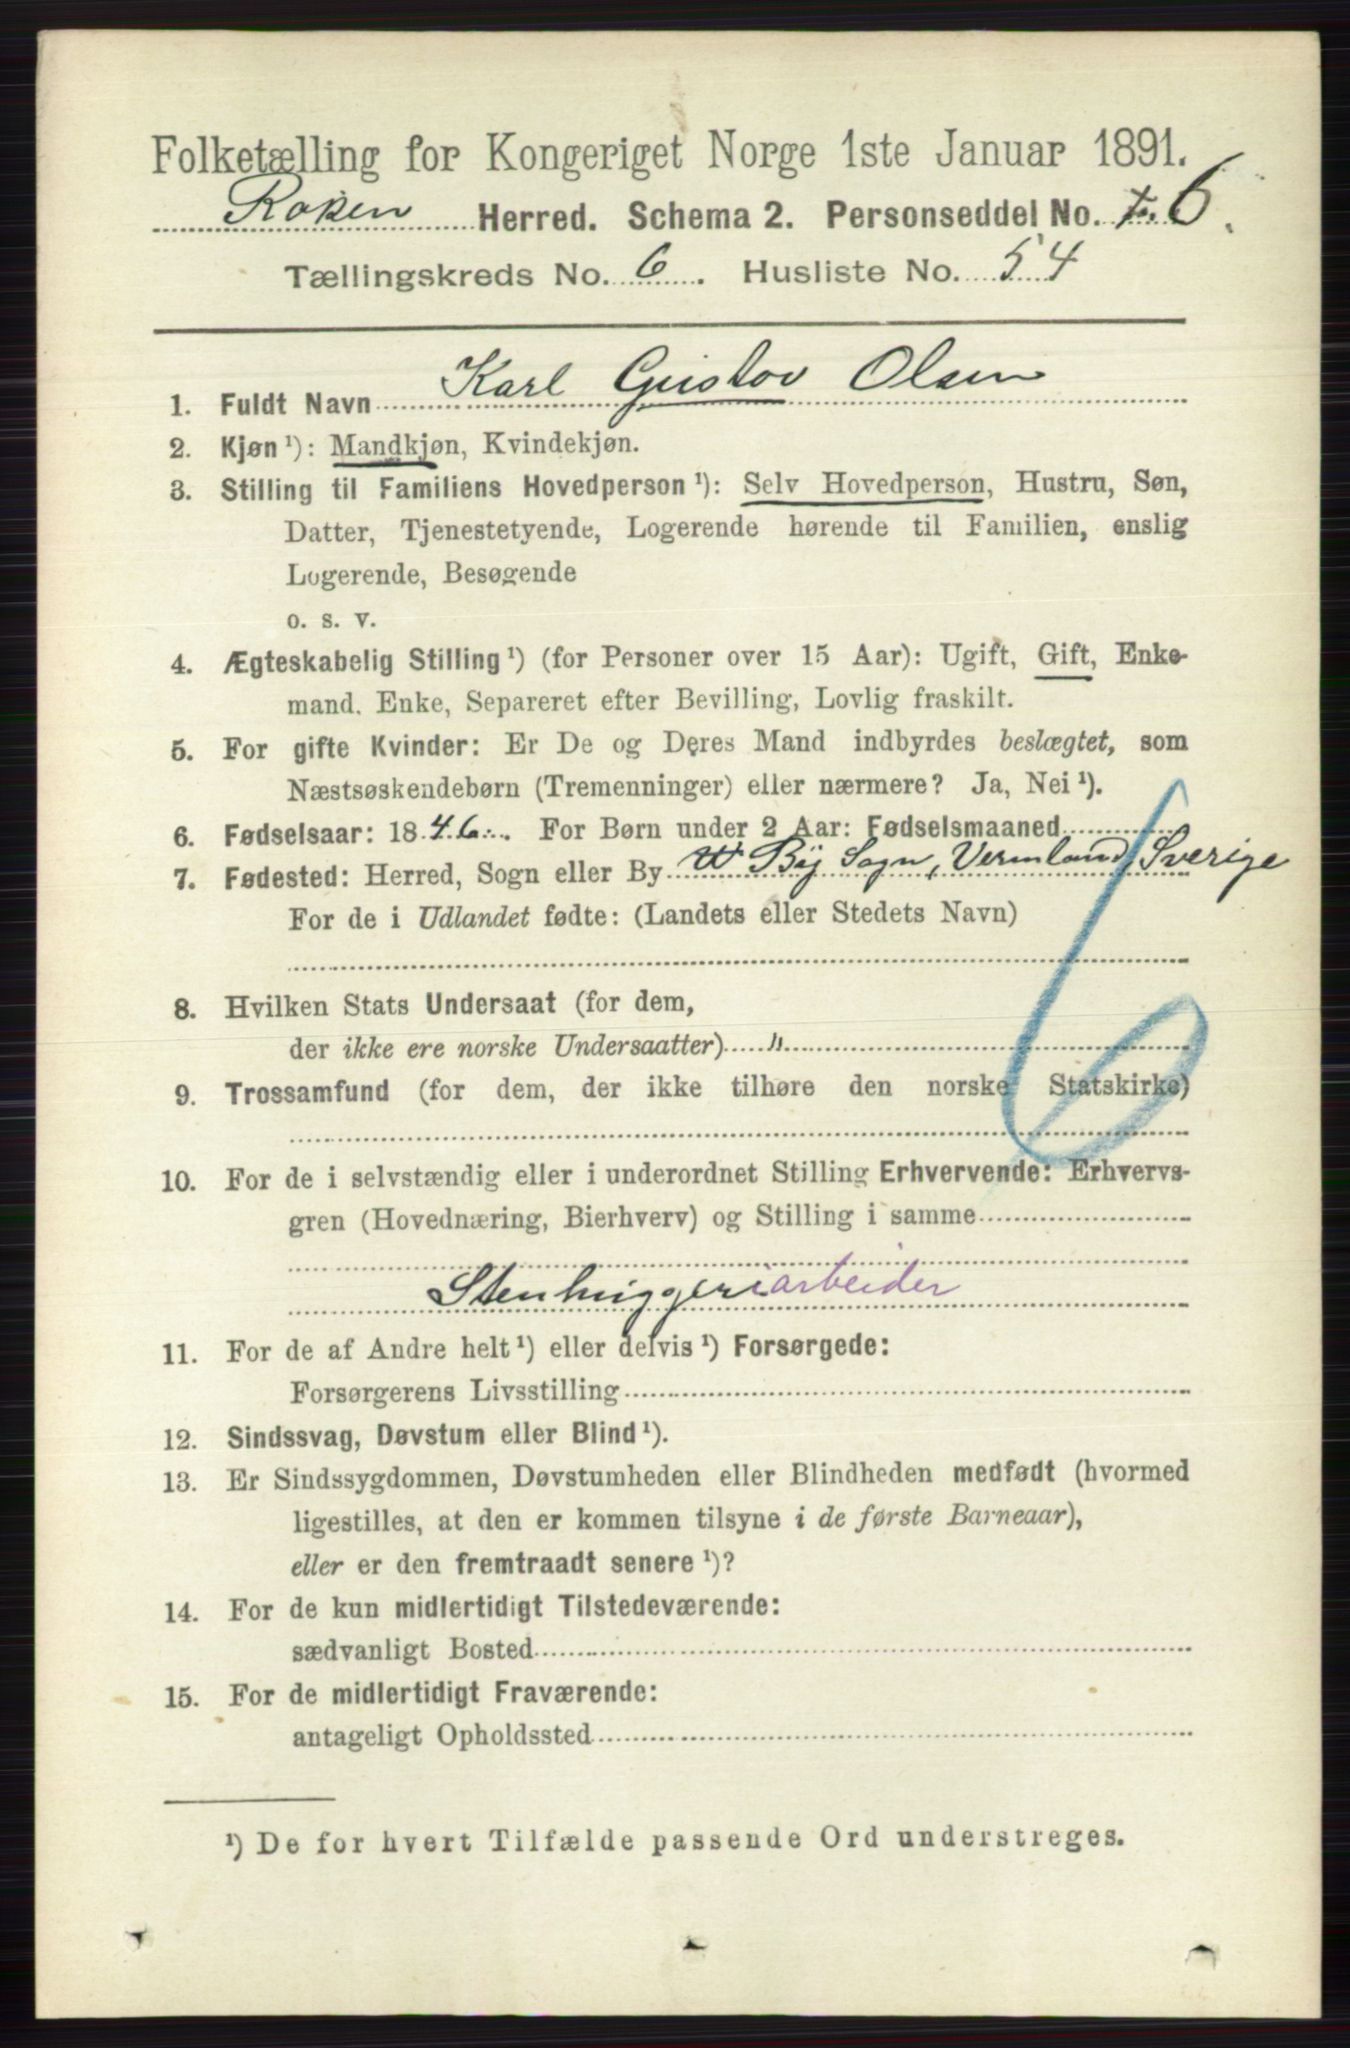 Folketælling for Kongeriget Norge 1ste Januar 1891.
Røken Herred. Schema 2. Personseddel No. 6.
Tællingskreds No. 6. Husliste No. 54
1. Fuldt Navn Karl Gustov Olsen
2. Kjøn ¹): Mandkjøn, Kvindekjøn.
3. Stilling til Familiens Hovedperson ¹): Selv Hovedperson, Hustru, Søn,
Datter, Tjenestetyende, Logerende hørende til Familien, enslig
Logerende, Besøgende
o. s. v.
4. Ægteskabelig Stilling ¹) (for Personer over 15 Aar): Ugift, Gift, Enke-
mand. Enke, Separeret efter Bevilling, Lovlig fraskilt.
5. For gifte Kvinder: Er De og Deres Mand indbyrdes beslægtet, som
Næstsøskendebørn (Tremenninger) eller nærmere? Ja, Nei ¹).
6. Fødselsaar: 1846. For Børn under 2 Aar: Fødselsmaaned
7. Fødested: Herred, Sogn eller By By Sogn, Vermland, Sverige
For de i Udlandet fødte: (Landets eller Stedets Navn)
6
8. Hvilken Stats Undersaat (for dem,
der ikke ere norske Undersaatter) "
9. Trossamfund (for dem, der ikke tilhøre den norske Statskirke)
10. For de i selvstændig eller i underordnet Stilling Erhvervende: Erhvervs-
gren (Hovednæring, Bierhverv) og Stilling i samme
Stenhuggeriarbeider
11. For de af Andre helt ¹) eller delvis ¹) Forsørgede:
Forsørgerens Livsstilling
12. Sindssvag, Døvstum eller Blind ¹).
13. Er Sindssygdommen, Døvstumheden eller Blindheden medfødt (hvormed
ligestilles, at den er kommen tilsyne i de første Barneaar),
eller er den fremtraadt senere ¹)?
14. For de kun midlertidigt Tilstedeværende:
sædvanligt Bosted
15. For de midlertidigt Fraværende:
antageligt Opholdssted
¹) De for hvert Tilfælde passende Ord understreges.